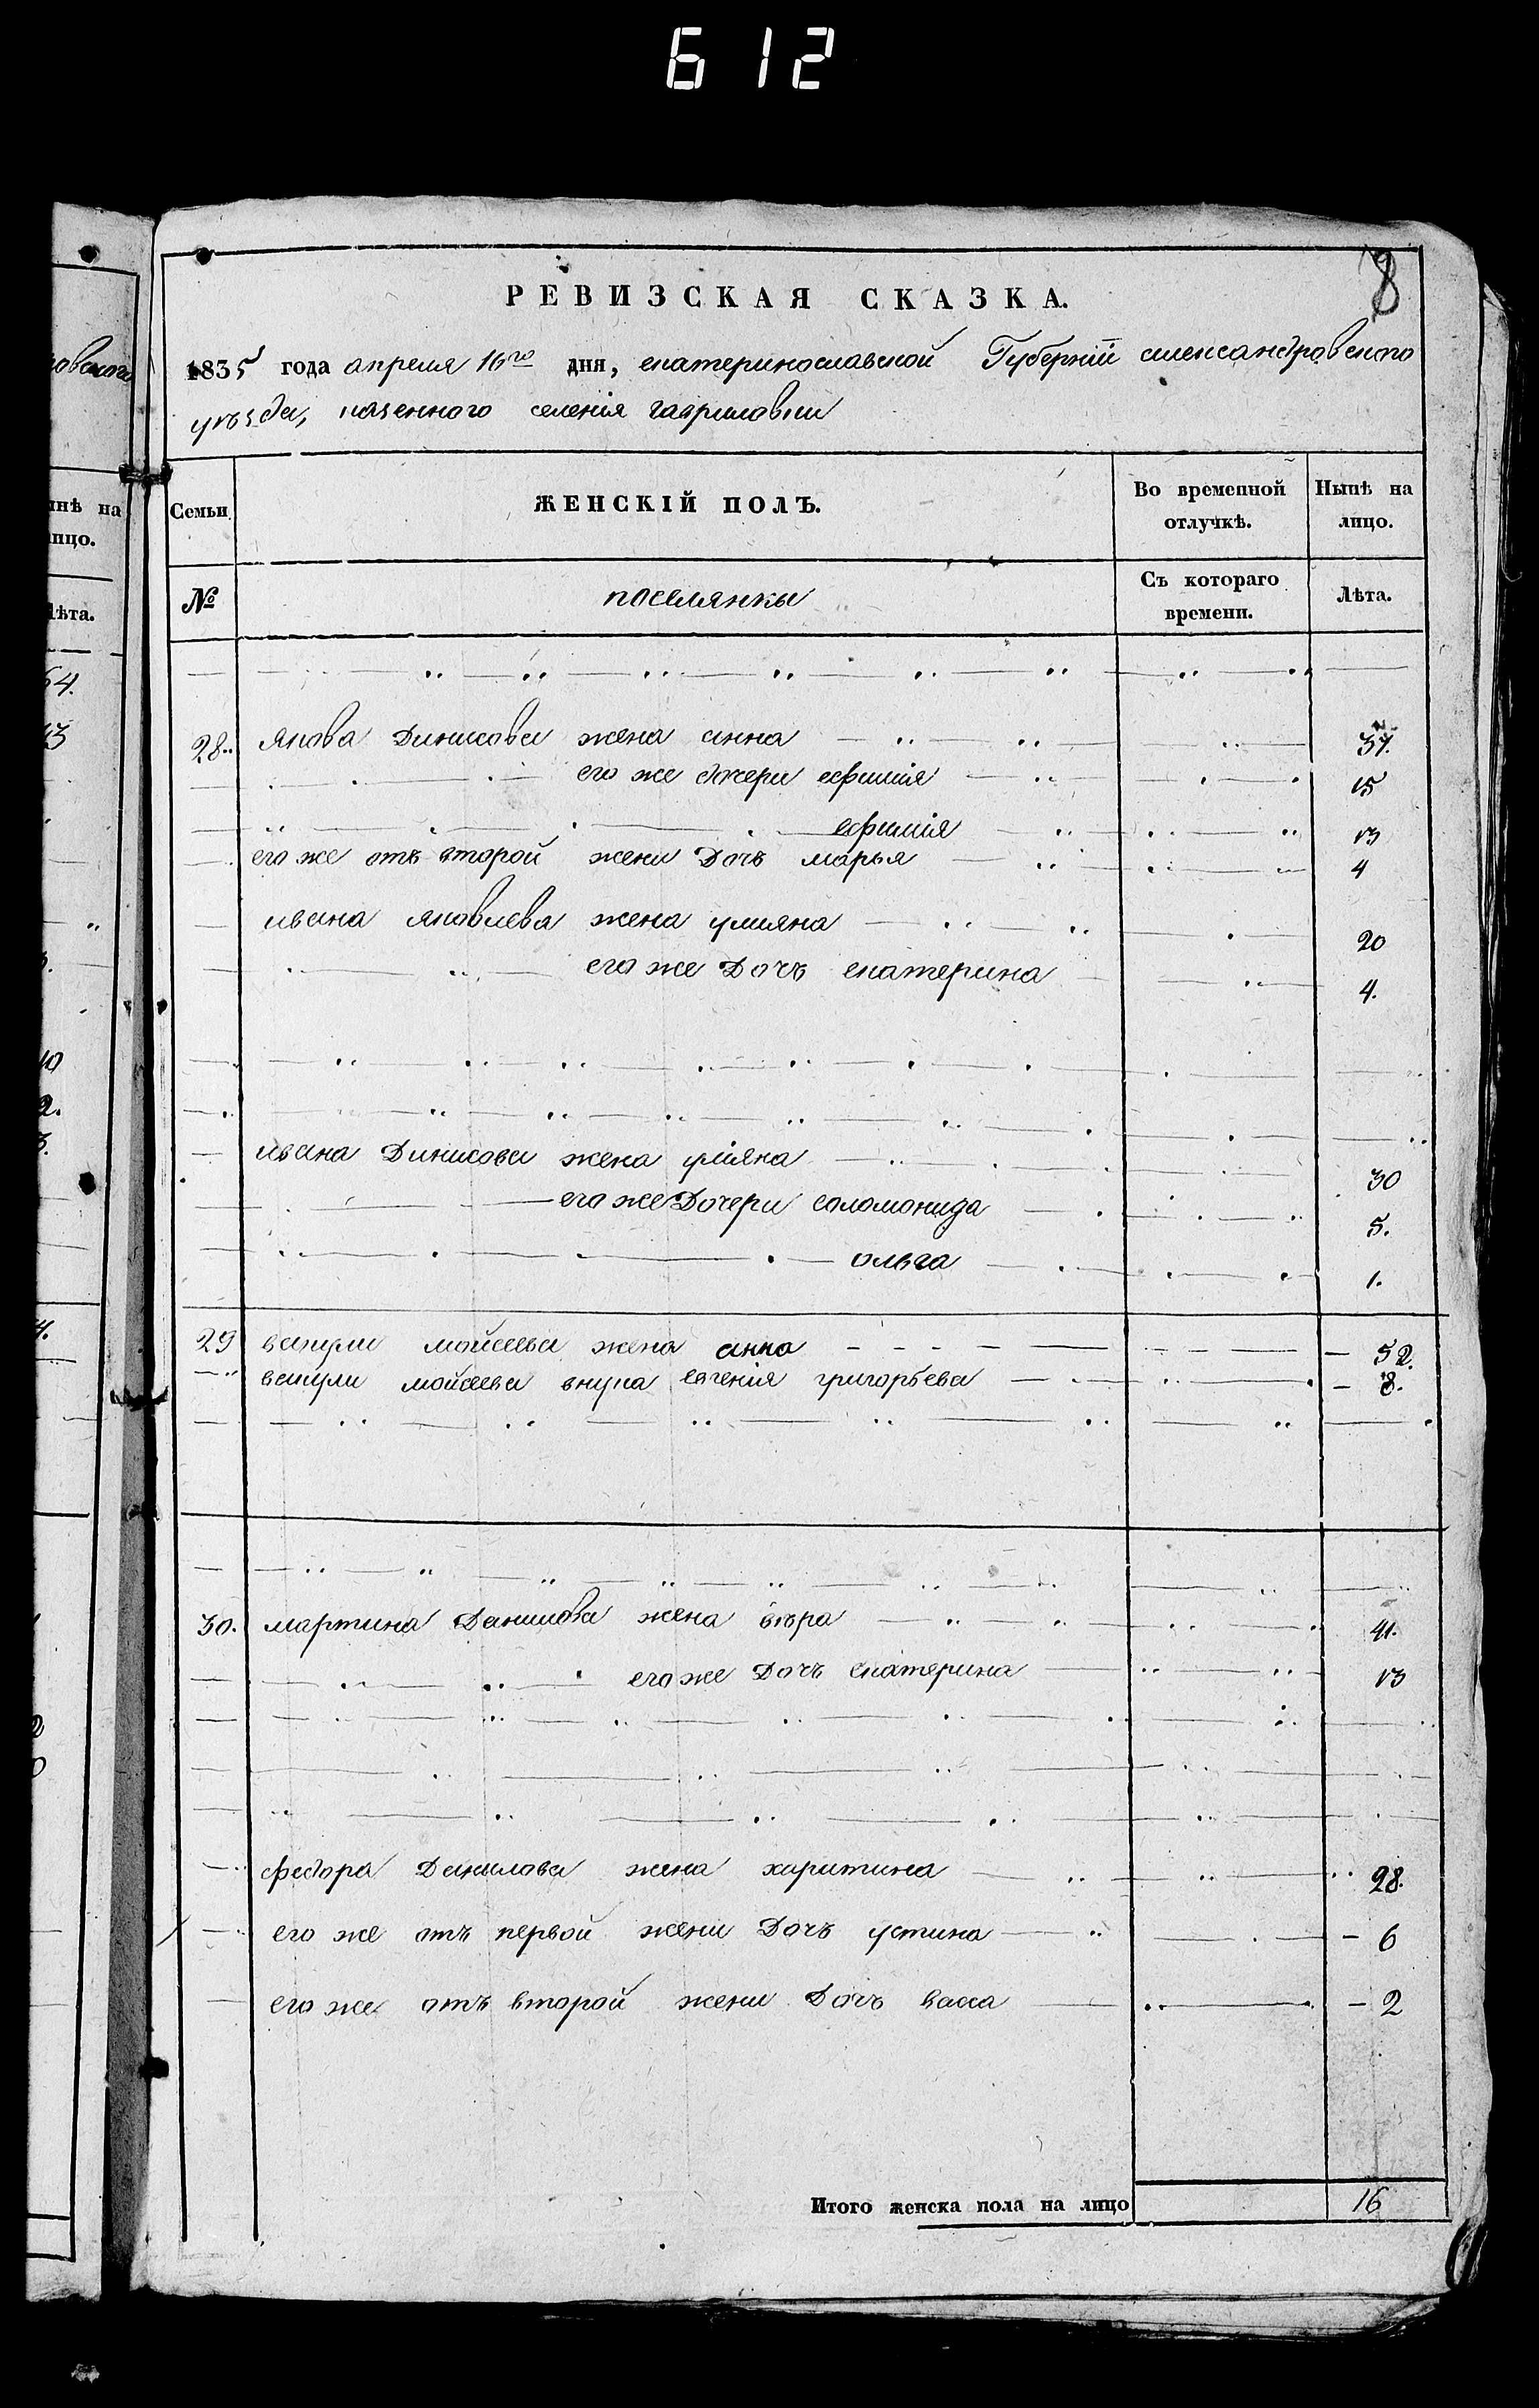 612
8
РЕВИЗСКАЯ СКАЗКА.
1835 года апреля 16го дня, екатеринославской Губерніи александровского
уѣзда, казенного селенія гавриловки
Семьи
ЖЕНСКІЙ ПОЛЪ.
Во временной отлучкѣ.
Нынѣ на лицо.
№
поселянки
Съ котораго времени.
Лѣта.
28. якова Динисова жена анна 37.
его же дочери ефимія 15
ефимія 13
его же отъ второй жени Дочь марья 4
ивана яковлева жена улияна 20
его же Дочъ екатерина 4.
ивана Динисова жена уліяна 30
его же Дочери соломонида 5.
ольга 1.
29 вакули мойсеева жена анна 52.
вакули мойсеева внука евгенія григорьева 8.
30. мартина Данилова жена вѣра 41.
его же Дочъ екатерина 13
федора Данилова жена харитина 28.
его же отъ первой жени Дочъ устина 6
его же отъ второй жени Дочъ васса 2
Итого женска пола на лицо 16